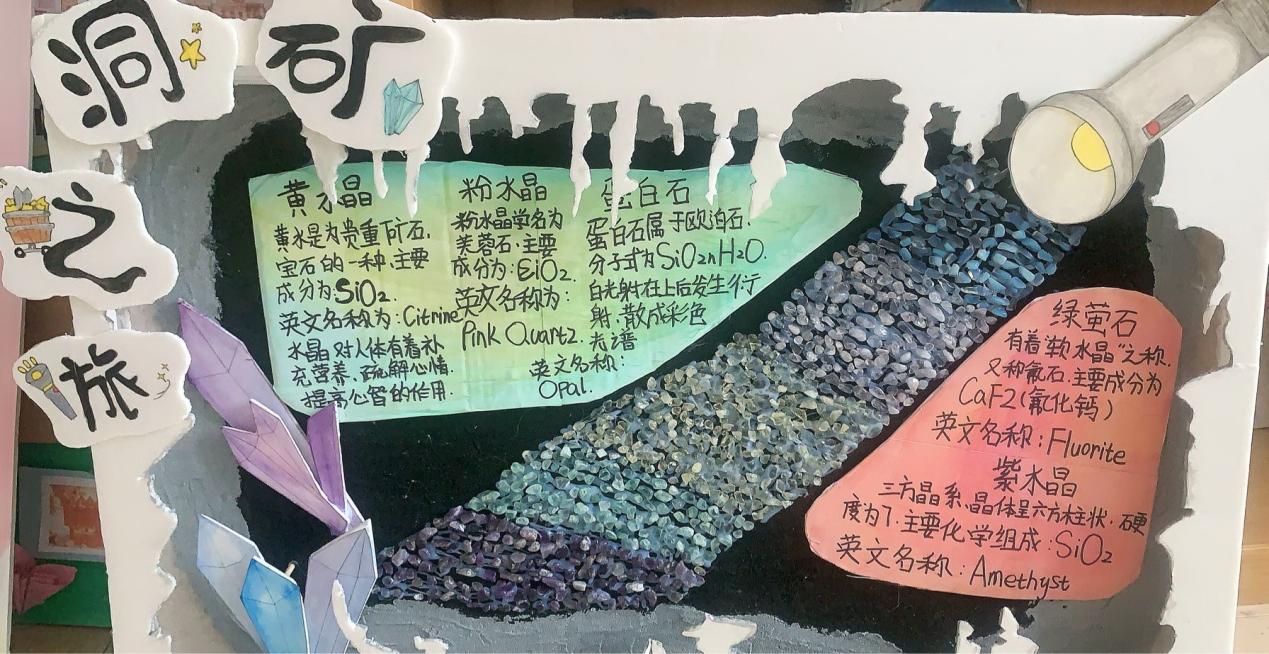 矿洞
之
旅
黄水晶
黄水是为贵重矿石,
宝石的一种,主要
成分为:SiO2.
英文名称为:Citrine
水晶对人体有着补
充营养、疏解心情.
提高心智的作用.
粉水晶
粉水晶学名为
芙蓉石.主要
成分为:SiO2.
英文名称为:
Pink Quartz.
蛋白石
蛋白石属于欧泊石.
分子式为SiO2nH2O.
白光射在上后发生行
射.散成彩色
光谱
英文名称:
Opal.
绿萤石
有着"软水晶"之称.
又称氟石.主要成分为
CaF2(氟化钙)
英文名称:Fluorite
紫水晶
三方晶系、晶体呈六方柱状.硬
度为7.主要化学组成:SiO2
英文名称:Amethyst